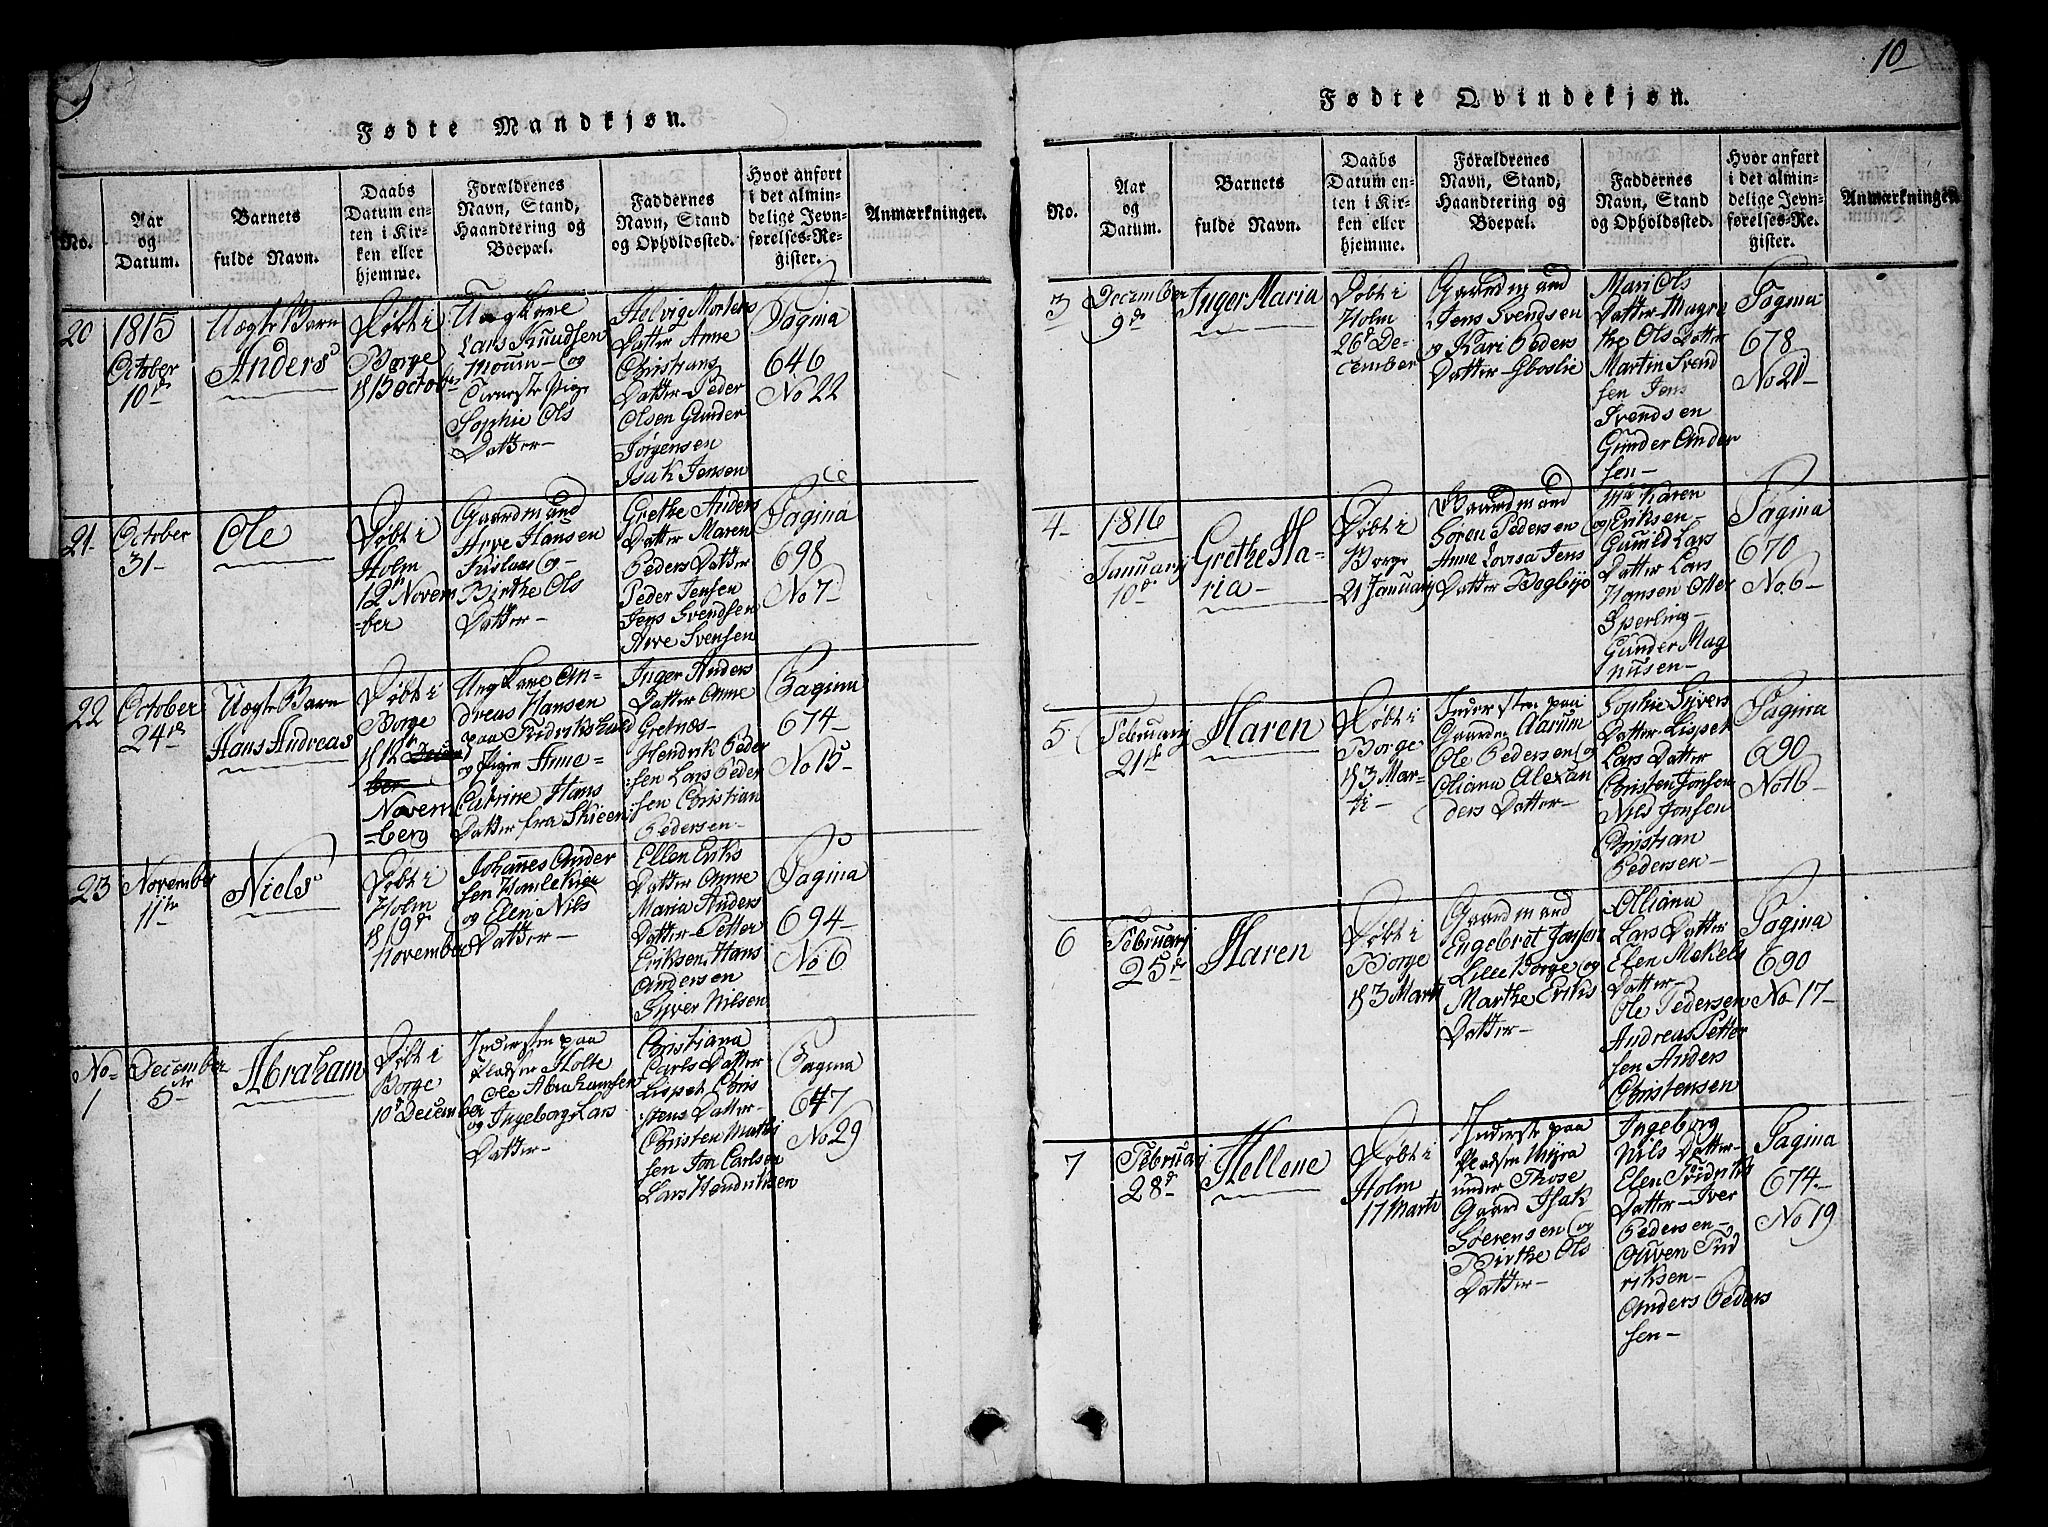 Fødte Mandkjøn.
No.
Aar
og
Datum.
Barnets
fulde Navn.
Daabs
Datum en-
ten i Kir-
ken eller
hjemme.
Forældrenes
Navn, Stand,
Haandtering og
Boepæl.
Faddernes
Navn, Stand
og Opholdssted.
Hvor anført
i det almin-
delige Jevn-
førelses-Re-
gister.
Anmærkninger.
20
1815
October
10de
Uægte Barn
Anders
Døbt i
Borge
d 15 octob
Ungkare
Lars Knudsen
Moum - og
Pige
Sophie Ols
Datter -
Helvig Mortens
Datter Anne
Christians
Datter - Peder
Olsen Gunder
Jørgensen
Isak Jensen
Pagina
646
No 22
21-
October
31-
Ole
Døbt i
Holm
12te Novem
=ber
Gaardmand
Arve Hansen
og
Birthe Ols
Datter -
Grethe Anders
Datter Maren
Peders Datter
Peder Jensen
Jens Svendsen
Arve Svensen
Pagina
698
No 7-
22
October
24de
Uægte Barn
Hans Andreas
Døbt i
Borge
d 12te
Novem
=berg
Ungkare An-
dreas Hansen
paa Fridrikshald
og Pigen Anne=
Catrine Hans
Datter fra Skieen
Inger Anders
Datter Anne
Gretnæs-
Hendrik Peder
:sen Lars Peder
:sen Christian
Pedersen-
Pagina
674-
No 15-
23
November
11te
Niels
Døbt i
Holm
d 19de
November
Johannes Ander
sen
og Elen Nils
Datter -
Ellen Eriks
Datter Anne
Maria Anders
Datter - Petter
Eriksen. Hans
Andersen
Syver Nilsen
Pagina
694-
No 6
No-
1
December
5te
Abraham
Døbt i
Borge
10de December
Indersten paa
Pladsen Holte
Ole Abrahamsen
og Ingeborg Lars
Datter -
Christiana
Carls Datter
Lispet Chris
:stens Datter-
Christen Mathi
sen Jon Carlsen
Lars Hendriksen
Pagina
647
No 29
10
Fødte Qvindekjøn.
No.
Aar
og
Datum.
Barnets
fulde Navn.
Daabs
Datum en-
ten i Kir-
ken eller
hjemme.
Forældrenes
Navn, Stand,
Haandtering og
Boepæl.
Faddernes
Navn, Stand
og Opholdssted.
Hvor anført
i det almin-
delige Jevn-
førelses-Re-
gister.
Anmærkninger
3
December
9de
Inger Maria
Døbt i
Holm
26de De-
cember
Gaardmand
Jens Svendsen
og Kari Peders
Datter - Gboslie
Mari Ols
Datter - Magre
the Ols Datter
Martin Svend
sen Jens
Svendsen
Gunder Ander
sen -
Pagina
678
No 21-
4-
1816
Januarij
10de
Grethe Ma-
ria -
Døbt i
Borge
21 Januarij
Gaardmand
Søren Pedersen og
Anne Lovisa Jens
Datter Bogbye
Karen
Eriksen -
Gunild Lars
Datter Lars
Hansen Otter
Sperling
Gunder Mag
nusen -
Pagina
670
No. 6-
5
Februarij
21de
Maren
Døbt i
Borge
d 3 Mar-
ti -
Indersten paa
Gaarden Aarum
Ole Pedersen og
Oliana Alexan
ders Datter -
Sophie Syvers
Datter - Lispet
Lars Datter
Christen Jonsen
Nils Jonsen
Christian
Pedersen -
Pagina
690
No 16-
6
Februarij
25de
Maren
Døbt i
Borge
d 3 Marti
Gaardmand
Engebret Jonsen
Lille Borge og
Marthe Eriks
Datter -
Olliana
Lars Datter
Elen Mekels
Datter -
Ole Pedersen
Andreas Petter
sen Anders
Christensen
Pagina
690
No 17-
7
Februarij
28de
Hellene
Døbt i
Holm
17 Marti
Inderste paa
Pladsen
under Those
Gaard Isak
Sørensen og
Birthe Ols
Datter -
Ingeborg
Nils Datter -
Elen Fridriks
Datter - Iver
Pedersen -
Ouven Frid
riksen -
Anders Peders
sen -
Pagina
674-
No 19